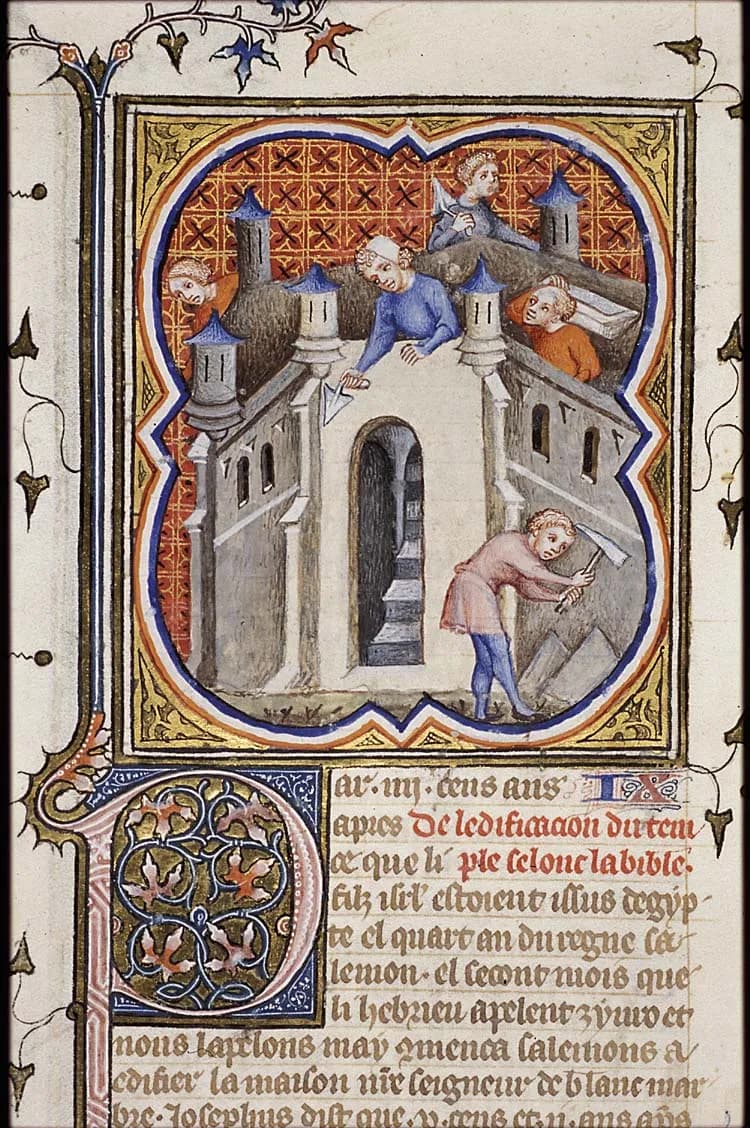 Par. iiij. cens ans IX
apres De ledificacion du tem
ce que li ple selonc la bible.
filz isrl' estoient issus degyp
te el quart an du regne sa
lemon. el secont mois que
li hebrieu apelent zyuvo et
nous lapelons may 9menca salemons a
edifier la maison nr̃e seigneur de blanc mar
bre. Josephus dist que. v. cens et. ij. ans ap̃s